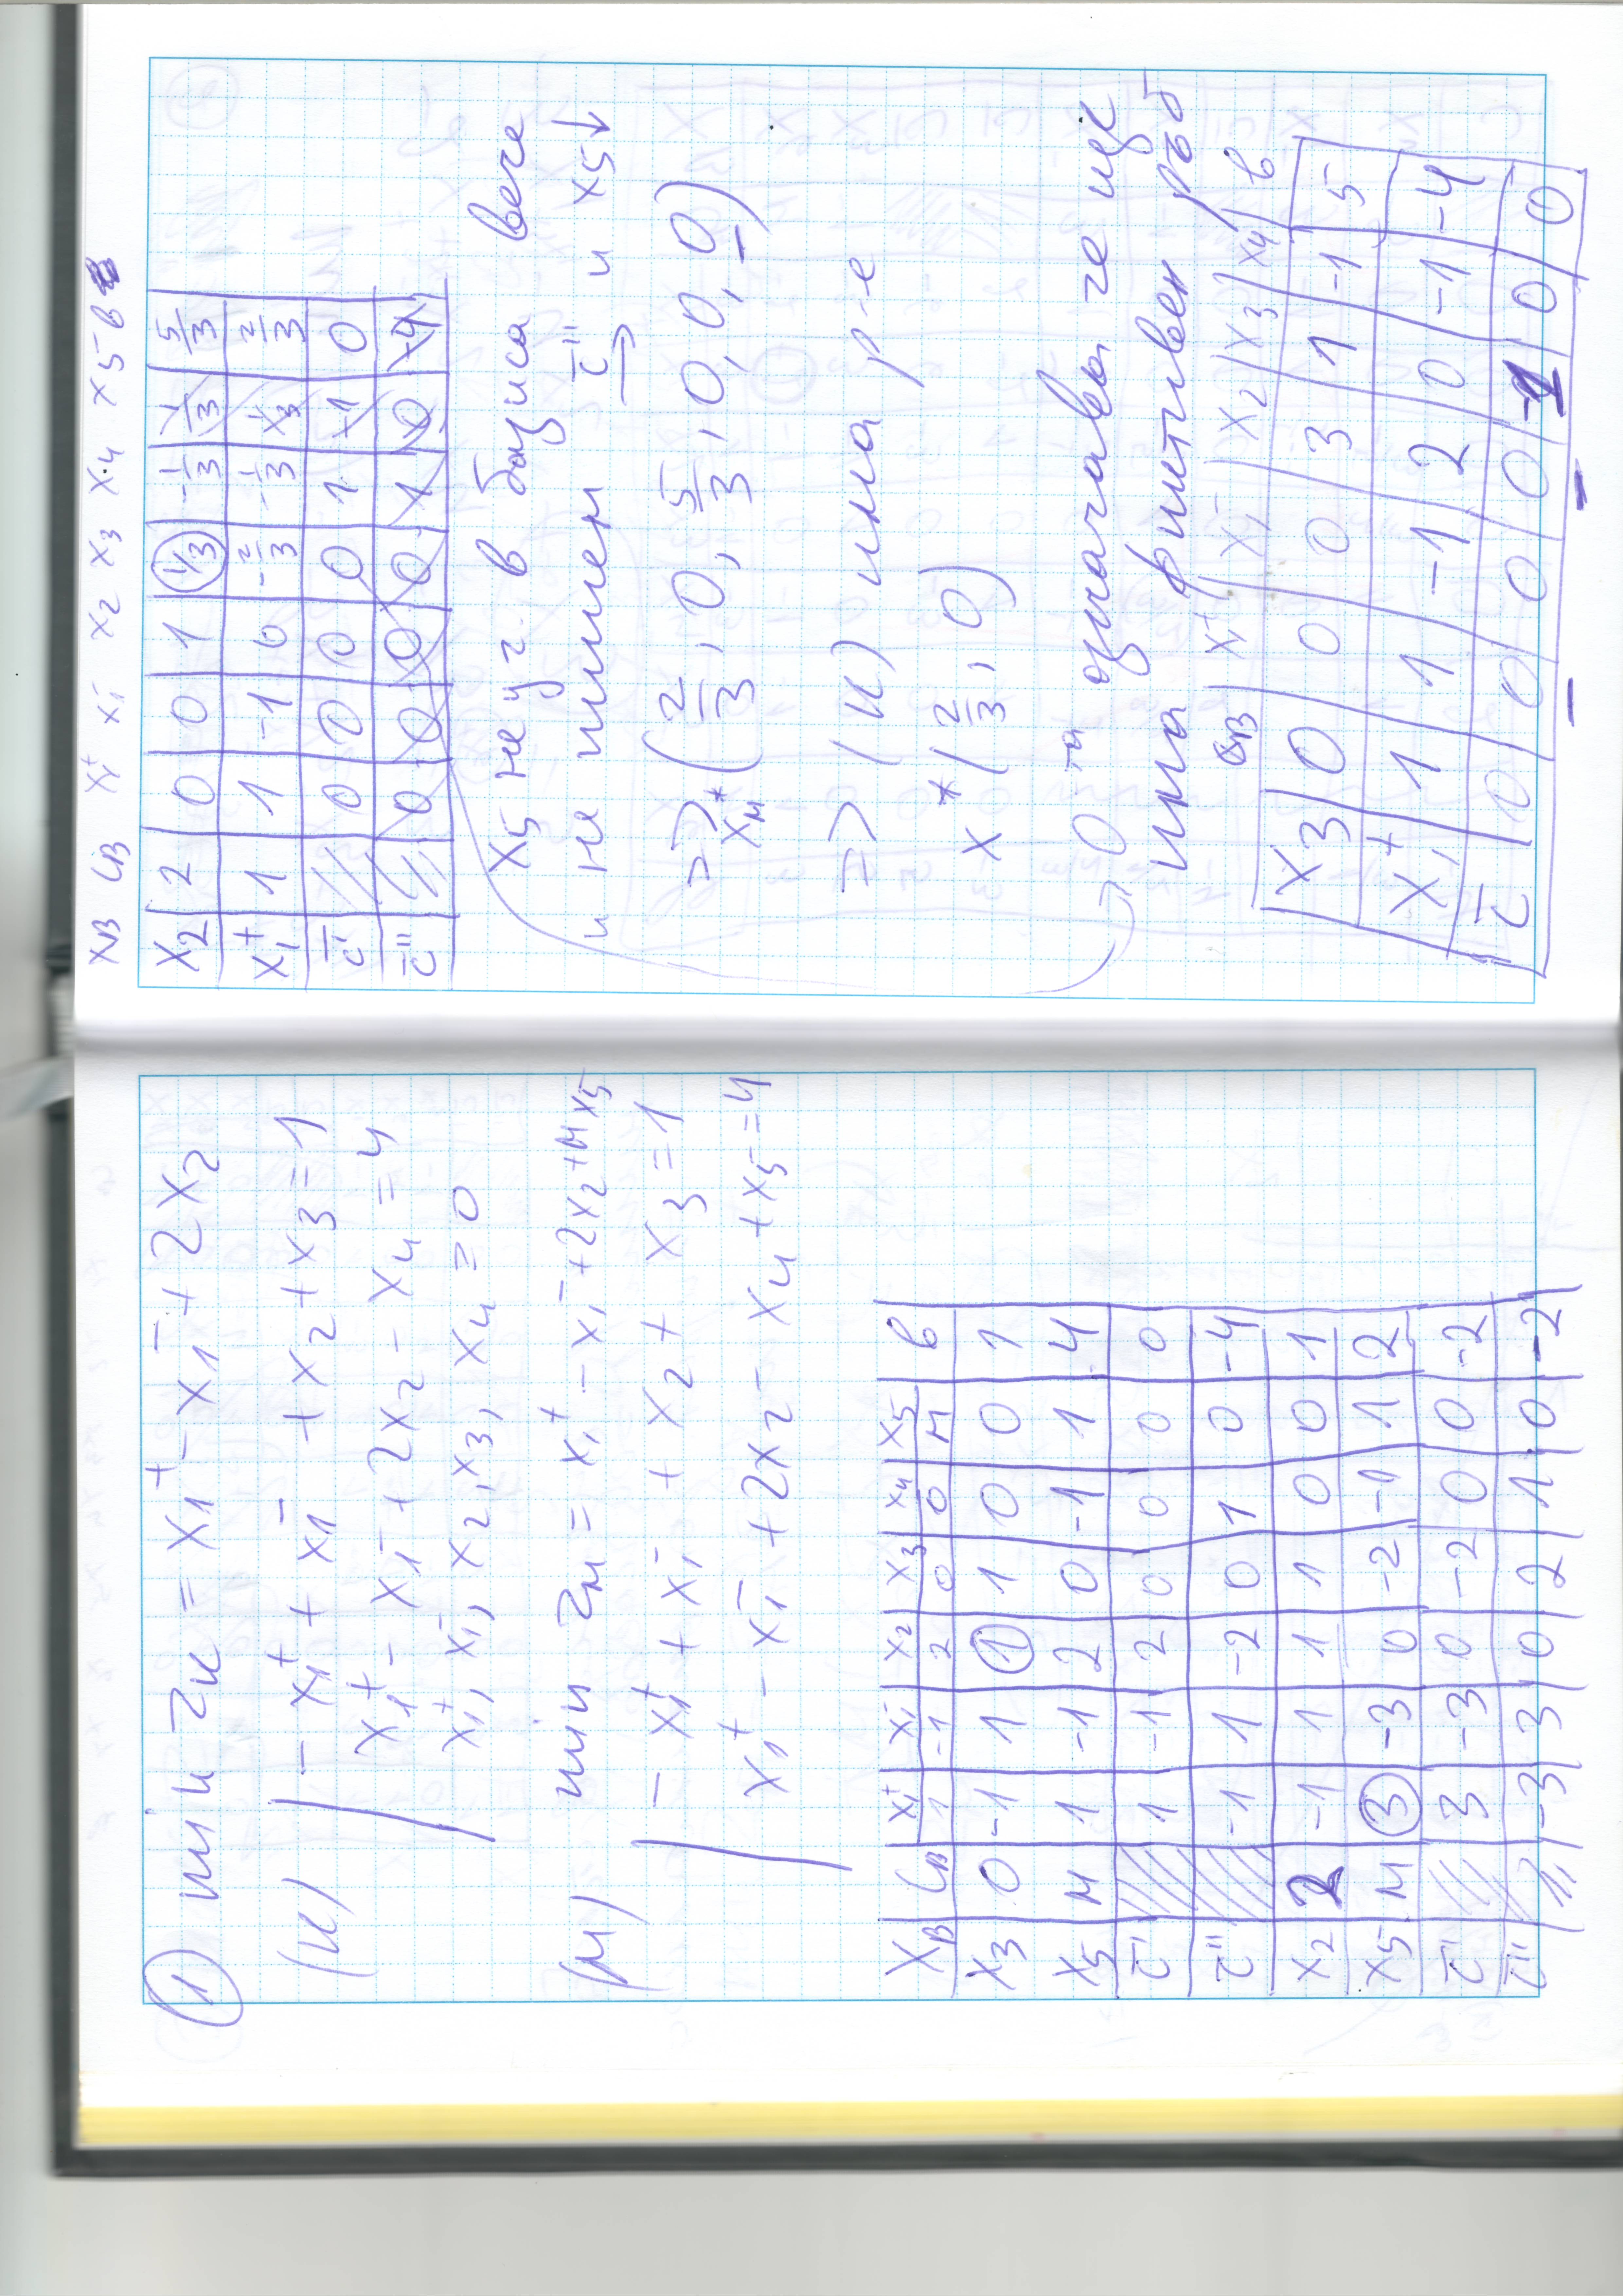 ① min zк = x₁⁺ - x₁⁻ + 2x₂
(К) | - x₁⁺ + x₁⁻ + x₂ + x₃ = 1
x₁⁺ - x₁⁻ + 2x₂ - x₄ = 4
x₁⁺, x₁⁻, x₂, x₃, x₄ = 0
min zм = x₁⁺ - x₁⁻ + 2x₂ + Мx₅
(М) | - x₁⁺ + x₁⁻ + x₂ + x₃ = 1
x₁⁺ - x₁⁻ + 2x₂ - x₄ + x₅ = 4
xB CB x₁⁺ x₁⁻ x₂ x₃ x₄ x₅ в
1 -1 2 0 0 М
x₃ 0 -1 1 ① 1 0 0 1
x₅ М 1 -1 2 0 -1 1 4
c̄' 1 -1 2 0 0 0 0
c̄'' -1 1 -2 0 1 0 -4
x₂ 2 -1 1 1 1 0 0 1
x₅ М ③ -3 0 -2 -1 1 2
c̄' 3 -3 0 -2 0 0 -2
c̄'' -3 3 0 2 1 0 -2
xB CB x₁⁺ x₁⁻ x₂ x₃ x₄ x₅ в
x₂ 2 0 0 1 (1/3) -1/3 1/3 5/3
x₁⁺ 1 1 -1 0 -2/3 -1/3 1/3 2/3
c̄' 0 0 0 0 1 -1 0
c̄'' 0 0 0 0 1 0 -4
x₅ не уч. в базиса вече
и не пишем c̄'' и x₅↓
=> xм* (2/3, 0, 5/3, 0, 0, 0)
=> (К) има р-е
x* (2/3, 0)
0-та означава че ЦФ
има фиктивен ръб
CB x₁⁺ x₁⁻ x₂ x₃ x₄ в
x₃ 0 0 0 3 1 -1 5
x₁⁺ 1 1 -1 2 0 -1 -4
c̄ 0 0 0 0 -1 0 0